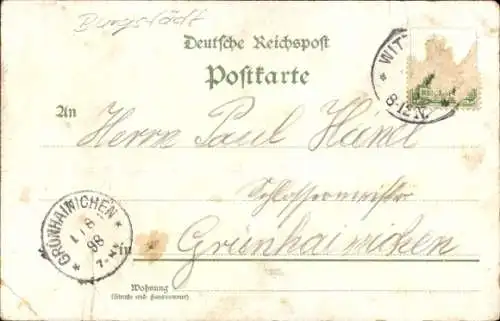 Burgstädt
Deutsche Reichspost
Postkarte
WIT
8-12 N.
An
Herrn Paul Händl
Schlossermeister
GRÜNHAINICHEN
1/8
98
7-
in
Grünhainichen
Wohnung
(Straße und Hausnummer)